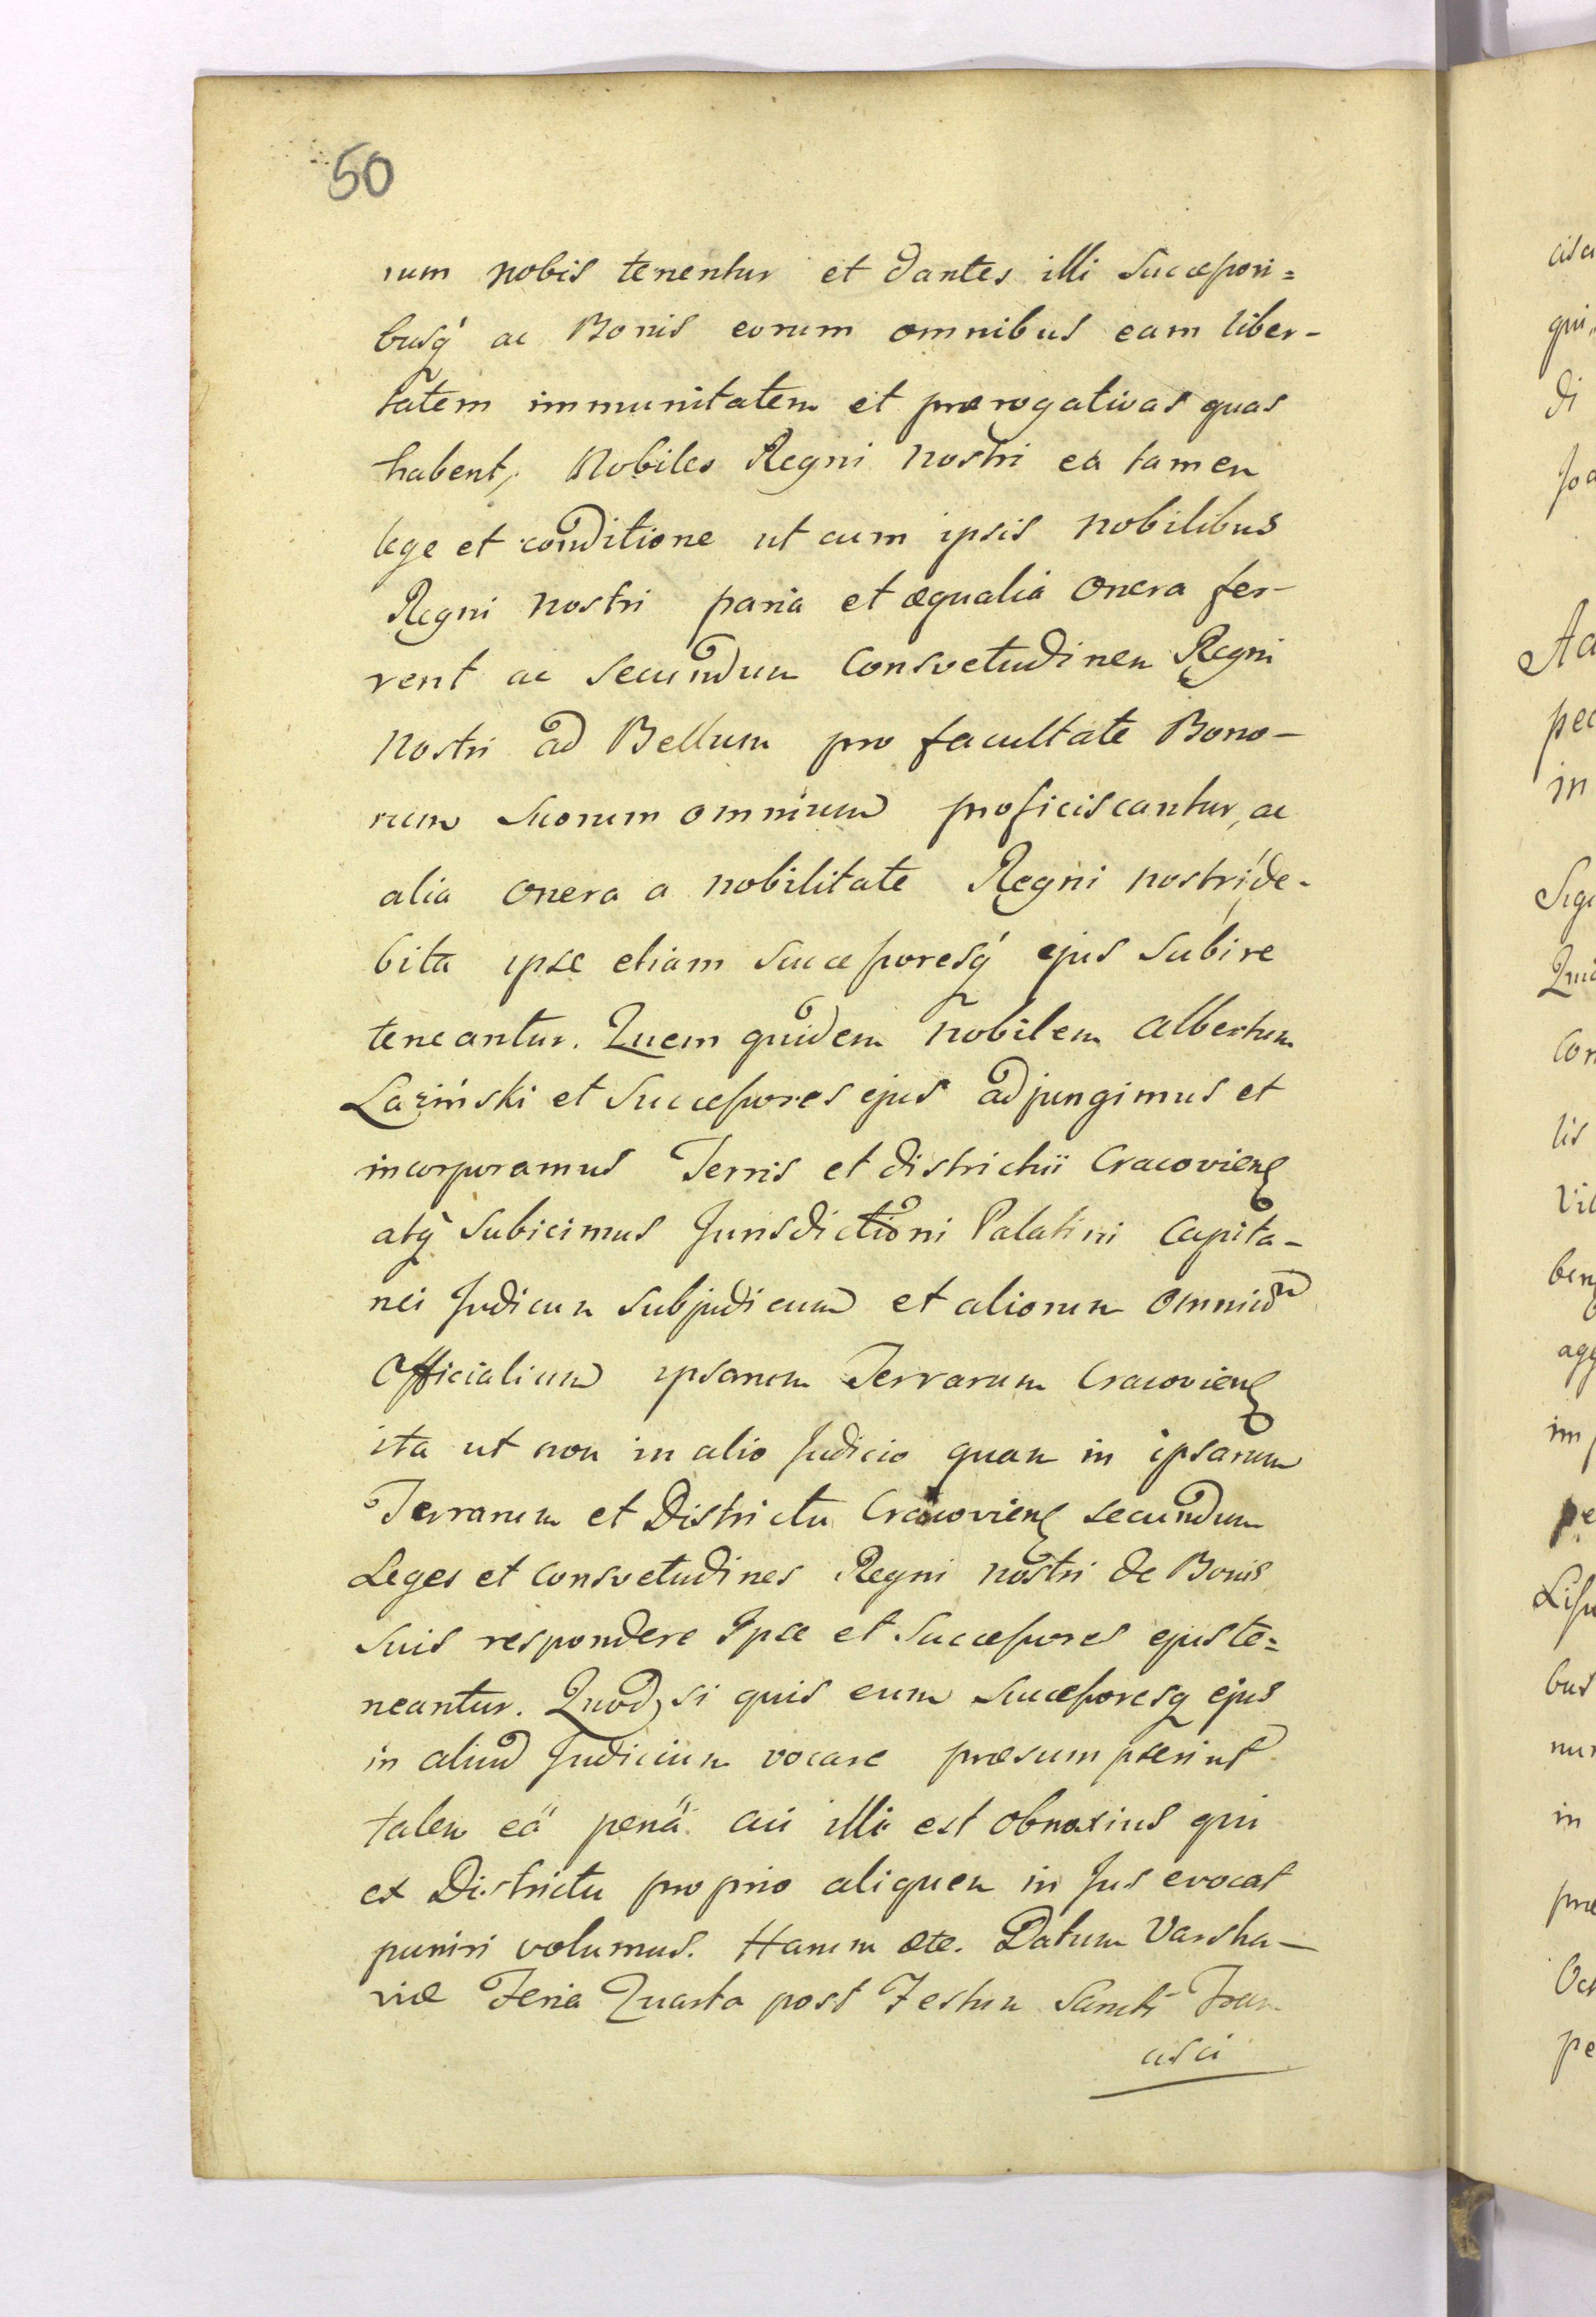 50
rum nobis tenentur et dantes illi Successori=
busq́ ac Bonis eorum omnibus eam liber-
tatem immunitatem et prærogativas quas
habent, Nobiles Regni nostri ea tamen
lege et conditione ut cum ipsis nobilibus
Regni nostri paria et æqualia onera fer-
rent ac secundum Consvetudinem Regni
nostri ad Bellum pro facultate Bono-
rum suorum omnium proficiscantur, ac
alia onera a nobilitate Regni nostri de-
bita ipse etiam successoresq́ ejus subire
teneantur. Quem quidem nobilem Albertum
Laziński et Successores ejus adjungimus et
incorporamus Terris et districtui Cracovien̄
atq́ subicimus Jurisdictioni Palatini Capita-
nei Judicum subjudicum et aliorum omniūm
Officialium ipsarum Terrarum Cracovien̄
ita ut non in alio Judicio quam in ipsarum
Terrarum et Districtu Cracovien̄ secundum
Leges et consvetudines Regni nostri de Bonis
suis respondere Ipse et Successores ejus te=
neantur. Quod si quis eum Successoresq ejus
in aliud Judicium vocare præsumpserint
talem eâ penâ cui illi est obnoxius qui
ex Districtu proprio aliquem in Jus evocat
puniri volumus. Harum etc. Datum Varsha-
viæ Feria Quarta post Festum Sancti Fran
cisci